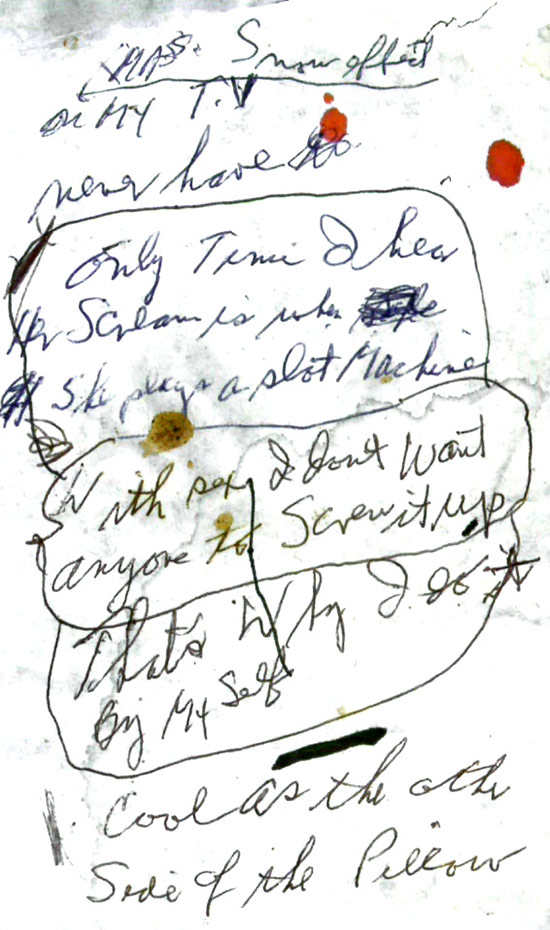 XMAS. Snow effect
on MY T.V
never have to
Only Time I hear
Her Scream is when
She plays a slot Machine
With sex I dont Want
anyone to Screw it up
That's Why I do it
By My Self
Cool as the other
Side of the Pillow